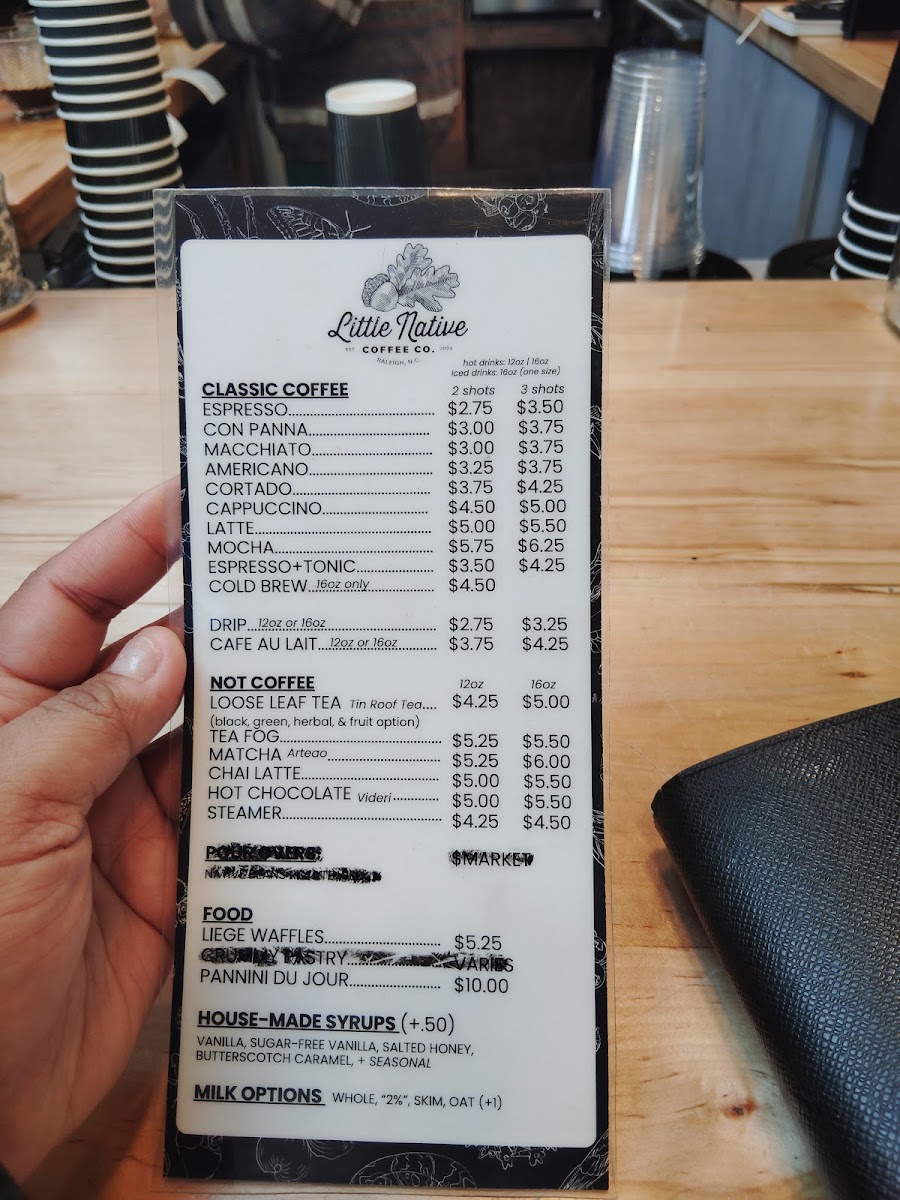 Little Native
EST. COFFEE CO. 2020
RALEIGH, N.C.
hot drinks: 12oz | 16oz
Iced drinks: 16oz (one size)
CLASSIC COFFEE 2 shots 3 shots
ESPRESSO $2.75 $3.50
CON PANNA $3.00 $3.75
MACCHIATO $3.00 $3.75
AMERICANO $3.25 $3.75
CORTADO $3.75 $4.25
CAPPUCCINO $4.50 $5.00
LATTE $5.00 $5.50
MOCHA $5.75 $6.25
ESPRESSO+TONIC $3.50 $4.25
COLD BREW 16oz only $4.50
DRIP 12oz or 16oz $2.75 $3.25
CAFE AU LAIT 12oz or 16oz $3.75 $4.25
NOT COFFEE 12oz 16oz
LOOSE LEAF TEA Tin Roof Tea $4.25 $5.00
(black, green, herbal, & fruit option)
TEA FOG $5.25 $5.50
MATCHA Arteao $5.25 $6.00
CHAI LATTE $5.00 $5.50
HOT CHOCOLATE Videri $5.00 $5.50
STEAMER $4.25 $4.50
POUR OVERS: $MARKET
FOOD
LIEGE WAFFLES $5.25
CRUMMY PASTRY VARIES
PANNINI DU JOUR $10.00
HOUSE-MADE SYRUPS (+.50)
VANILLA, SUGAR-FREE VANILLA, SALTED HONEY,
BUTTERSCOTCH CARAMEL, + SEASONAL
MILK OPTIONS WHOLE, "2%", SKIM, OAT (+1)